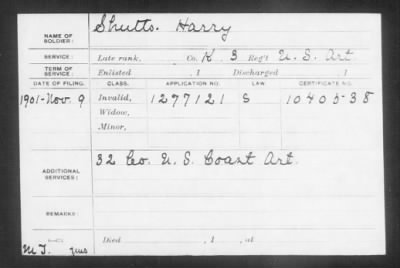 NAME OF SOLDIER: Shutts. Harry
SERVICE: Late rank, Co. K 3 Reg't U. S. Art.
TERM OF SERVICE: Enlisted , 1 Discharged , 1
DATE OF FILING. CLASS. APPLICATION NO. LAW CERTIFICATE NO.
1901-Nov. 9 Invalid, 1277121 S 10405-38
Widow,
Minor,
ADDITIONAL SERVICES: 32 Co. U. S. Coast Art.
REMARKS:
Died , 1 , at